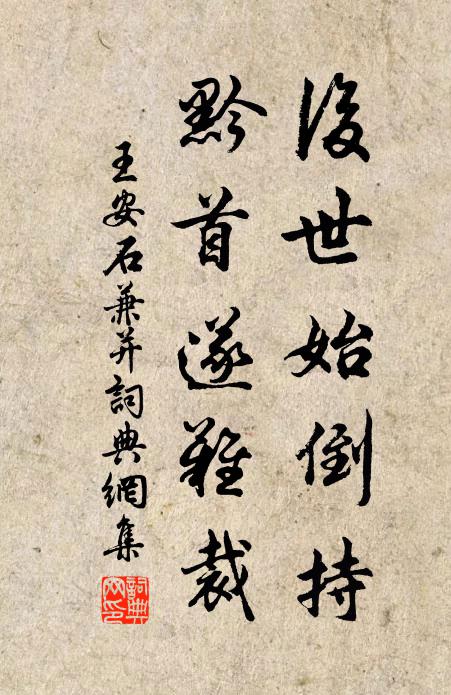 後世始倒持
黔首遂難裁
王安石兼并詞典網集
詞典網印